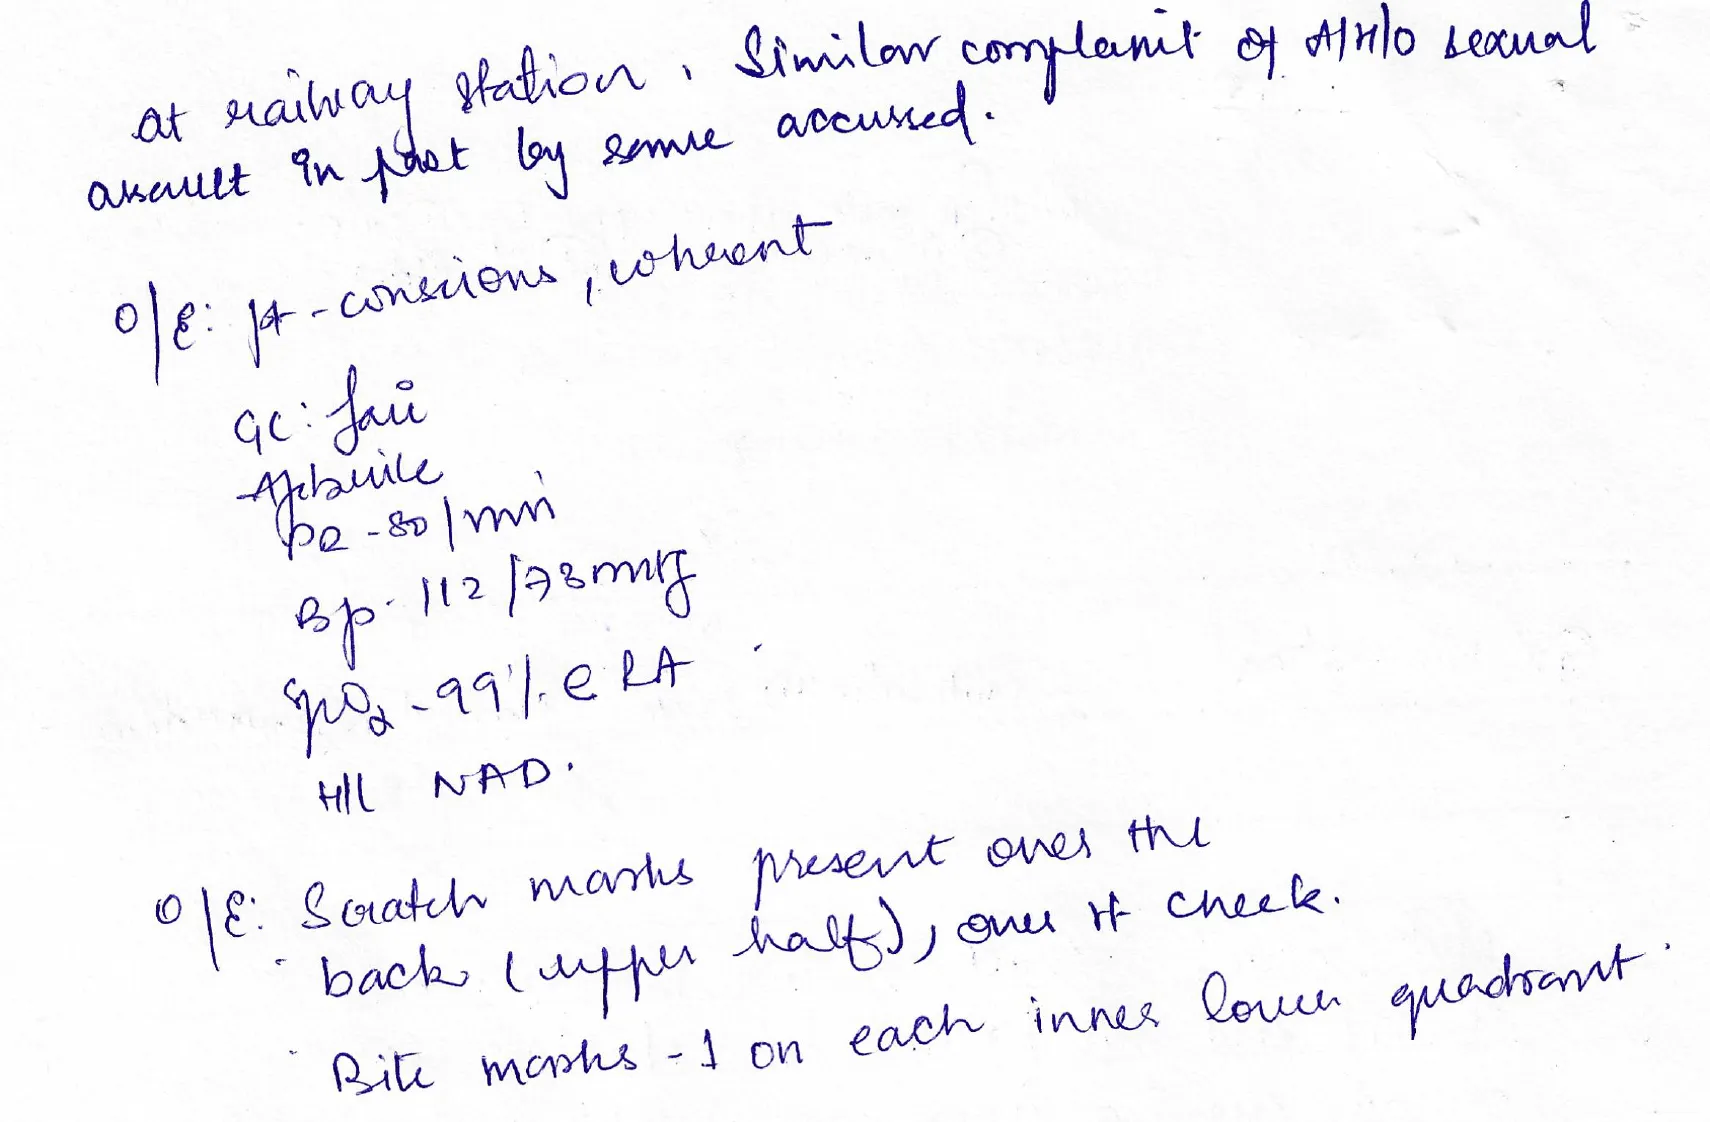 at railway station. Similar complaint of A/H/O sexual
assault in past by same accussed.
O/E: pt - conscious, coherent
GC: fair
Afebrile
PR - 80/min
BP - 112/78 mmHg
SpO2 - 99% @ RA
H/L NAD.
O/E: Scratch marks present over the
back (upper half), over cheek.
Bite marks - 1 on each inner lower quadrant.